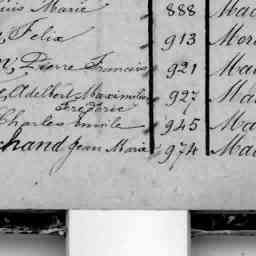 Marie 888 Mad
Felix 913 Mor
Pierre François 921 Mad
Adelbert Maximilien 927 Mad
Frédéric
Charles Emile 945 Mad
chand Jean Marie 974 Mad